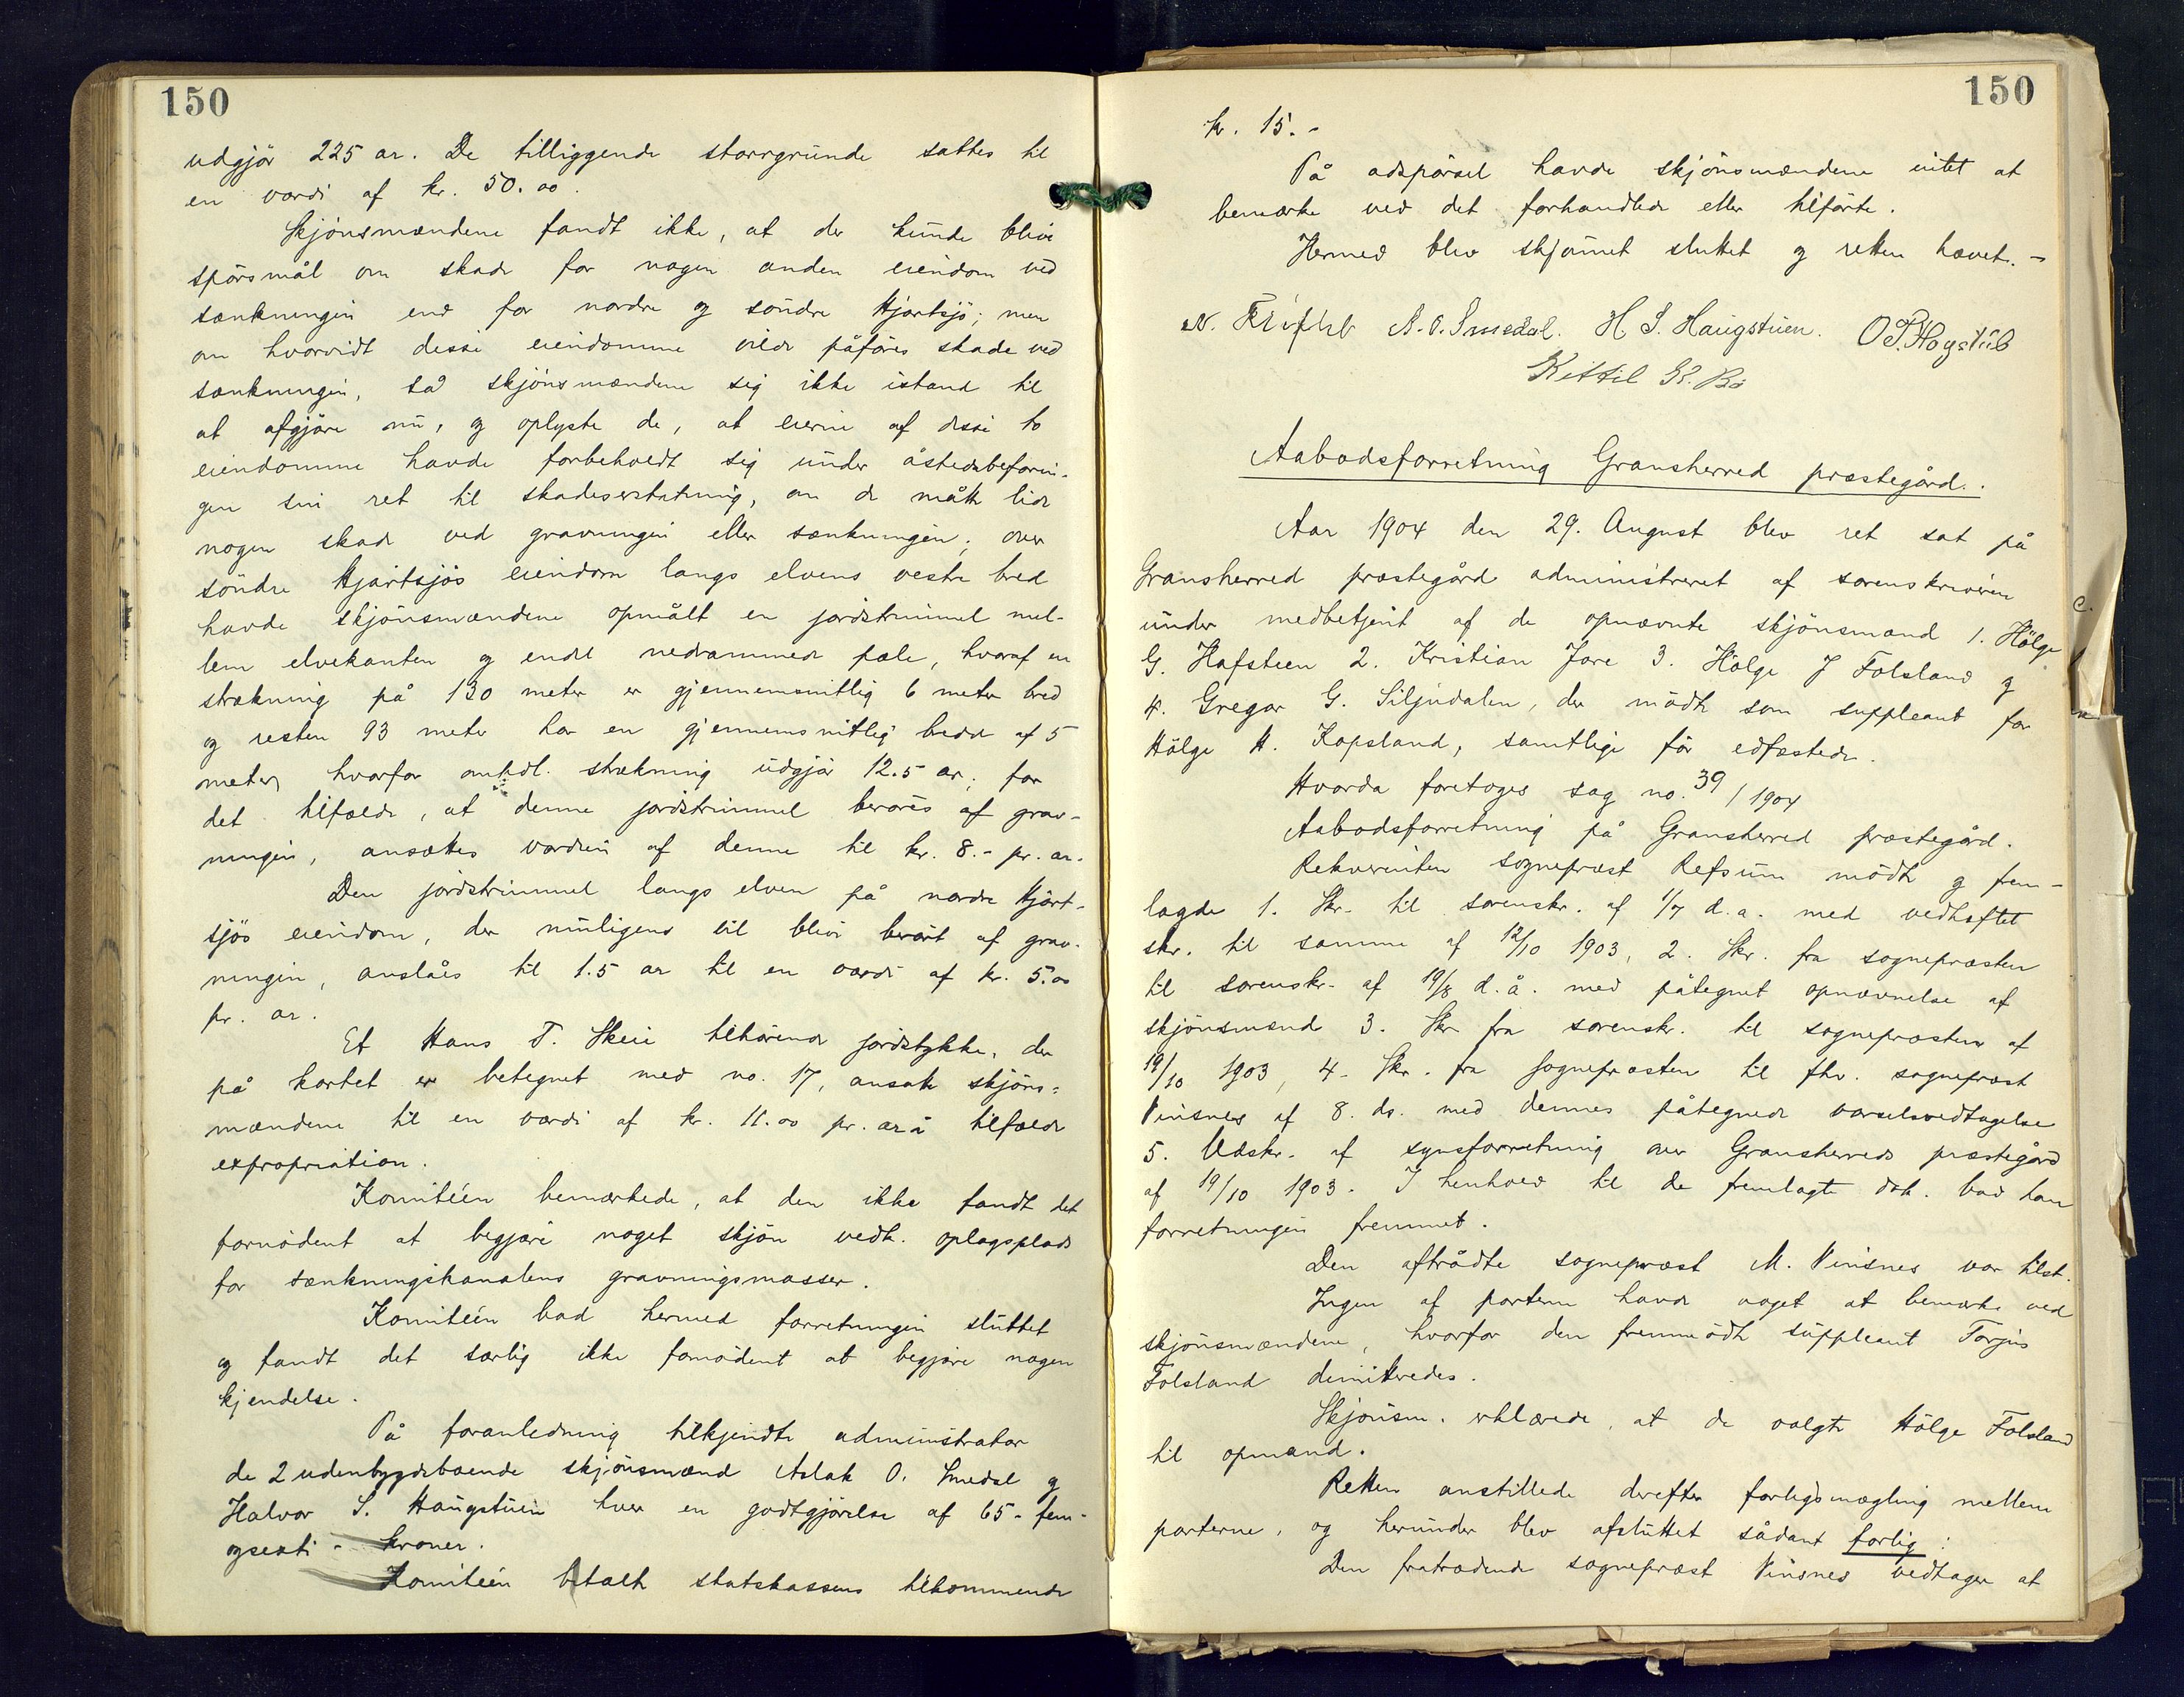 150
udgjör 225 ar. De tilliggende starrgrunde sattes til
en værdi af kr. 50.00.
Skjönsmændene fandt ikke, at der kunde blive
spörsmål om skade for nogen anden eiendom ved
sænkningen end for nordre og söndre Hjartsjö; men
om hvorvidt disse eiendomme vilde påföres skade ved
sænkningen, så skjönsmændene sig ikke istand til
at afgjöre nu, og oplyste de, at eierne af disse to
eiendomme havde forbeholdt sig under åstedsbefarin-
gen sin ret til skadeserstatning, om de måtte lide
nogen skade ved gravningen eller sænkningen; over
söndre Hjartsjös eiendom langs elvens vestre bred
havde skjönsmændene opmålt en jordstrimmel mel-
lem elvekanten og endel nedrammede pæle, hvoraf en
strækning på 130 meter er gjennemsnitlig 6 meter bred
og resten 93 meter har en gjennemsnitlig bredde af 5
meter, hvorfor omhdl. strækning udgjör 12.5 ar; for
det tilfælde, at denne jordstrimmel beröres af grav-
ningen, ansættes værdien af denne til kr. 8.- pr. ar.
Den jordstrimmel langs elven på nordre Hjart-
sjös eiendom, der muligens vil blive berört af grav-
ningen, anslåes til 1.5 ar til en værdi af kr. 5.00
pr. ar.
Et Hans T. Skeie tilhörende jordstykke, der
på kartet er betegnet med no. 17, ansatte skjöns-
mændene til en værdi af kr. 11.00 pr. ar i tilfælde
expropriation.
Komitéen bemærkede, at den ikke fandt det
fornödent at begjære noget skjön vedk. oplagsplads
for sænkningskanalens gravningsmasser.
Komitéen bad hermed forretningen sluttet
og fandt det særlig ikke fornödent at begjære nogen
kjendelse.
På foranledning tilkjendte administrator
de 2 udenbygdsboende skjönsmænd Aslak O. Smedal og
Halvor S. Haugstuen hver en godtgjörelse af 65 - fem-
ogsexti - kroner.
Komitéen betalte statskassens tilkommende
150
kr. 15.-
På adspörsel havde skjönsmændene intet at
bemærke ved det forhandlede eller tilförte.
Hermed blev skjönnet sluttet og retten hævet. -
A. O. Smedal. H S. Haugstuen. O P. Hogstub
Kittil K. Bö
Aabodsforretning Gransherred præstegård.
Aar 1904 den 29. August blev ret sat på
Gransherred præstegård administreret af sorenskriveren
under medbetjent af de opnævnte skjönsmænd 1. Hölge
G. Hafsteen 2. Kristian Jore 3. Hölge J Folsland og
4. Gregar G. Siljudalen, der mödte som suppleant for
Hölge H. Kopsland, samtlige för edfæstede.
Hvorda foretoges sag no. 39/1904
Aabodsforretning på Gransherred præstegård.
Rekvirenten sognepræst Refsum mödte og frem-
lagde 1. Skr. til sorenskr. af 1/7 d.a. med vedhæftet
skr. til samme af 12/10 1903, 2. Skr. fra sognepræsten
til sorenskr. af 19/8 d.å. med påtegnet opnævnelse af
skjönsmænd 3. Skr fra sorenskr. til sognepræsten af
19/10 1903, 4. Skr. fra sognepræsten til fhv. sognepræst
Vinsnes af 8. ds. med dennes påtegnede varselsvedtagelse
5. Udskr. af synsforretning over Gransherreds præstegård
af 19/10 1903. I henhold til de fremlagte dok. bad han
forretningen fremmet.
Den aftrådte sognepræst M. Vinsnes var tilst.
Ingen af parterne havde noget at bemærke ved
skjönsmændene, hvorfor den fremmödte suppleant Torjus
Folsland dimitteredes.
Skjönsm. erklærede, at de valgte Hölge Folsland
til opmand.
Retten anstillede derefter forligsmægling mellem
parterne, og herunder blev afsluttet sådant forlig:
Den fratrædende sognepræst Vinsnes vedtager at